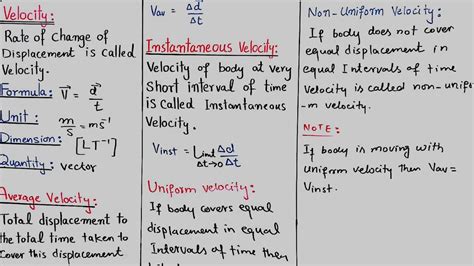 Velocity:
Rate of Change of
Displacement is Called
Velocity.
Formula: V⃗ = d⃗/t
Unit : m/s = ms⁻¹
Dimension: [LT⁻¹]
Quantity: vector
Average Velocity:
Total displacement to
the total time taken to
Cover this displacement
Vav = Δd⃗/Δt
Instantaneous Velocity:
Velocity of body at very
Short interval of time
is Called Instantaneous
Velocity.
Vinst = Limit Δt→0 Δd/Δt
Uniform velocity:
If body Covers equal
displacement in equal
Intervals of time then
Non-Uniform Velocity:
If body does not cover
equal displacement in
equal Intervals of time
Velocity is called non-unifor
-m velocity.
NOTE:
If body is moving with
Uniform velocity then Vav=
Vinst.